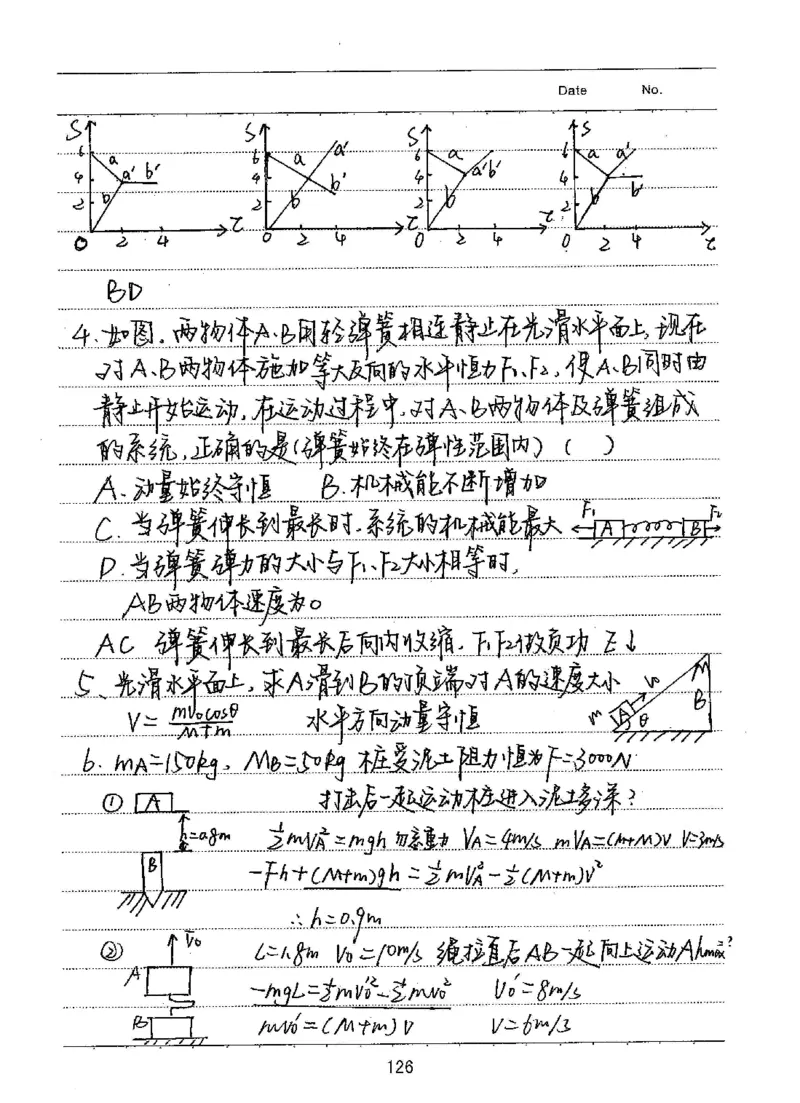 Date No.
S 6 4 2 0 2 4 t a b a' b'
S 6 4 2 0 2 4 t a b a' b'
S 6 4 2 0 2 4 t a b a'b'
S 6 4 2 0 2 4 t a b a' b'
BD
4、如图,两物体A、B用轻弹簧相连静止在光滑水平面上,现在
对A、B两物体施加等大反向的水平恒力F₁、F₂,使A、B同时由
静止开始运动,在运动过程中,对A、B两物体及弹簧组成
的系统,正确的是(弹簧始终在弹性范围内)( )
A.动量始终守恒 B.机械能不断增加
C.当弹簧伸长到最长时,系统的机械能最大 F₁ A B F₂
D.当弹簧弹力的大小与F₁、F₂大小相等时,
AB两物体速度为0
AC 弹簧伸长到最长后向内收缩,F₁F₂做负功 E↓
5、光滑水平面上,求A滑到B的顶端时A的速度大小 m A v₀ θ M B
V=mv₀cosθ/M+m 水平方向动量守恒
6. mA=150kg, MB=50kg 桩受泥土阻力恒为F=3000N
① A 打击后一起运动桩进入泥土多深?
h=0.8m ½mVA²=mgh 勿忘重力 VA=4m/s mVA=(M+M)V V=3m/s
B -Fh+(M+m)gh=½mVA²-½(M+m)V²
∴h=0.9m
② V₀ L=1.8m V₀=10m/s 绳拉直后AB一起向上运动Ahmax=?
A -mgL=½mv₀'²-½mv₀² V₀'=8m/s
B mv₀'=(M+m)V V=6m/s
126